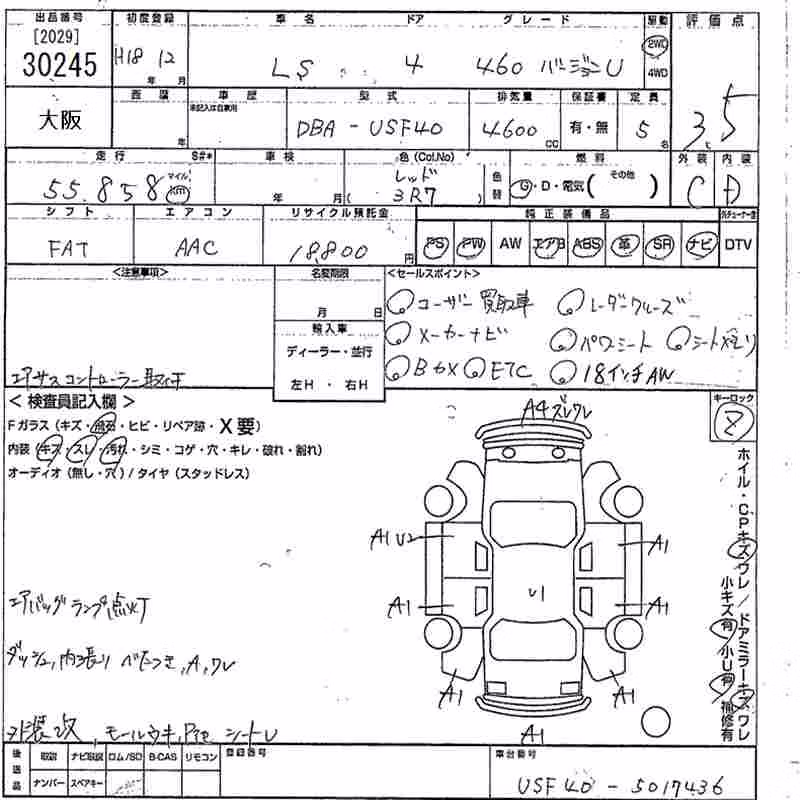 出品番号 初度登録 車名 ドア グレード 駆動 評価点
[2029]
30245 H18 12 LS 4 460 バージョンU 2WD 4WD 3.5
年 月
大阪 西暦 車歴 型式 排気量 保証書 定員
未記入は自家用
年 DBA-USF40 4600 cc 有・無 5 名
走行 S#* 車検 色(Col.No) 燃料 外装 内装
55,858 マイル km 年 月 レッド 色替 G・D・電気( その他 ) C D
( 3R7 )
シフト エアコン リサイクル預託金 純正装備品
FAT AAC 18,800 円 PS PW AW エアB ABS 革 SR ナビ DTV
<注意事項> 名変期限 <セールスポイント>
月 日 ユーザー買取車 レーダークルーズ
輸入車 メーカーナビ パワーシート シートメモリ
ディーラー・並行 Bカメ ETC 18インチAW
左H・右H
エアサスコントローラー取付
<検査員記入欄> A4ズレワレ キーロック
Fガラス(キズ・飛石・ヒビ・リペア跡・X要) 2
内装(キズ・スレ・汚れ・シミ・コゲ・穴・キレ・破れ・割れ)
オーディオ(無し・穴)/タイヤ(スタッドレス)
ホイル・CPキズワレ/ドアミラーキズワレ
小キズ有 小U有 補修有
A1U2 A1
A1 U1 A1
エアバッグランプ点灯
ダッシュ,内張りべたつき,A,ワレ
A1 A1
外装改,モールウキ, シートし
A1
後送品 取説 ナビ取説 ロム/SD B-CAS リモコン 登録番号 車台番号
ナンバー スペアキー USF40-5017436